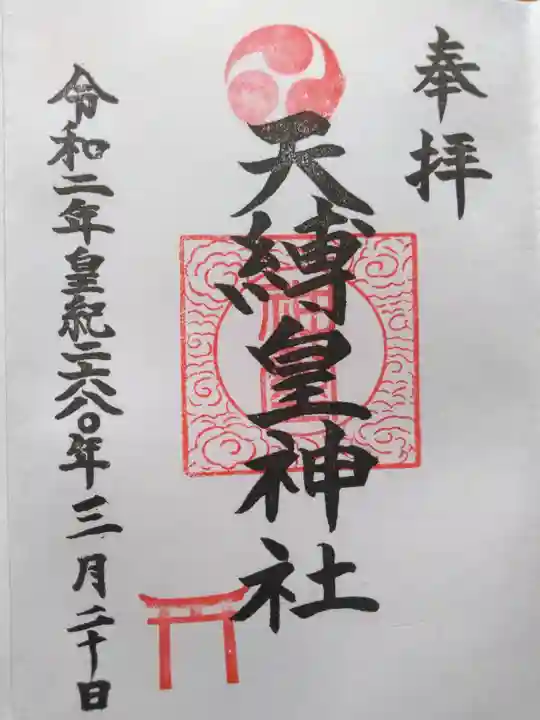 奉拝
天縛皇神社
令和二年皇紀二六八〇年三月二十日